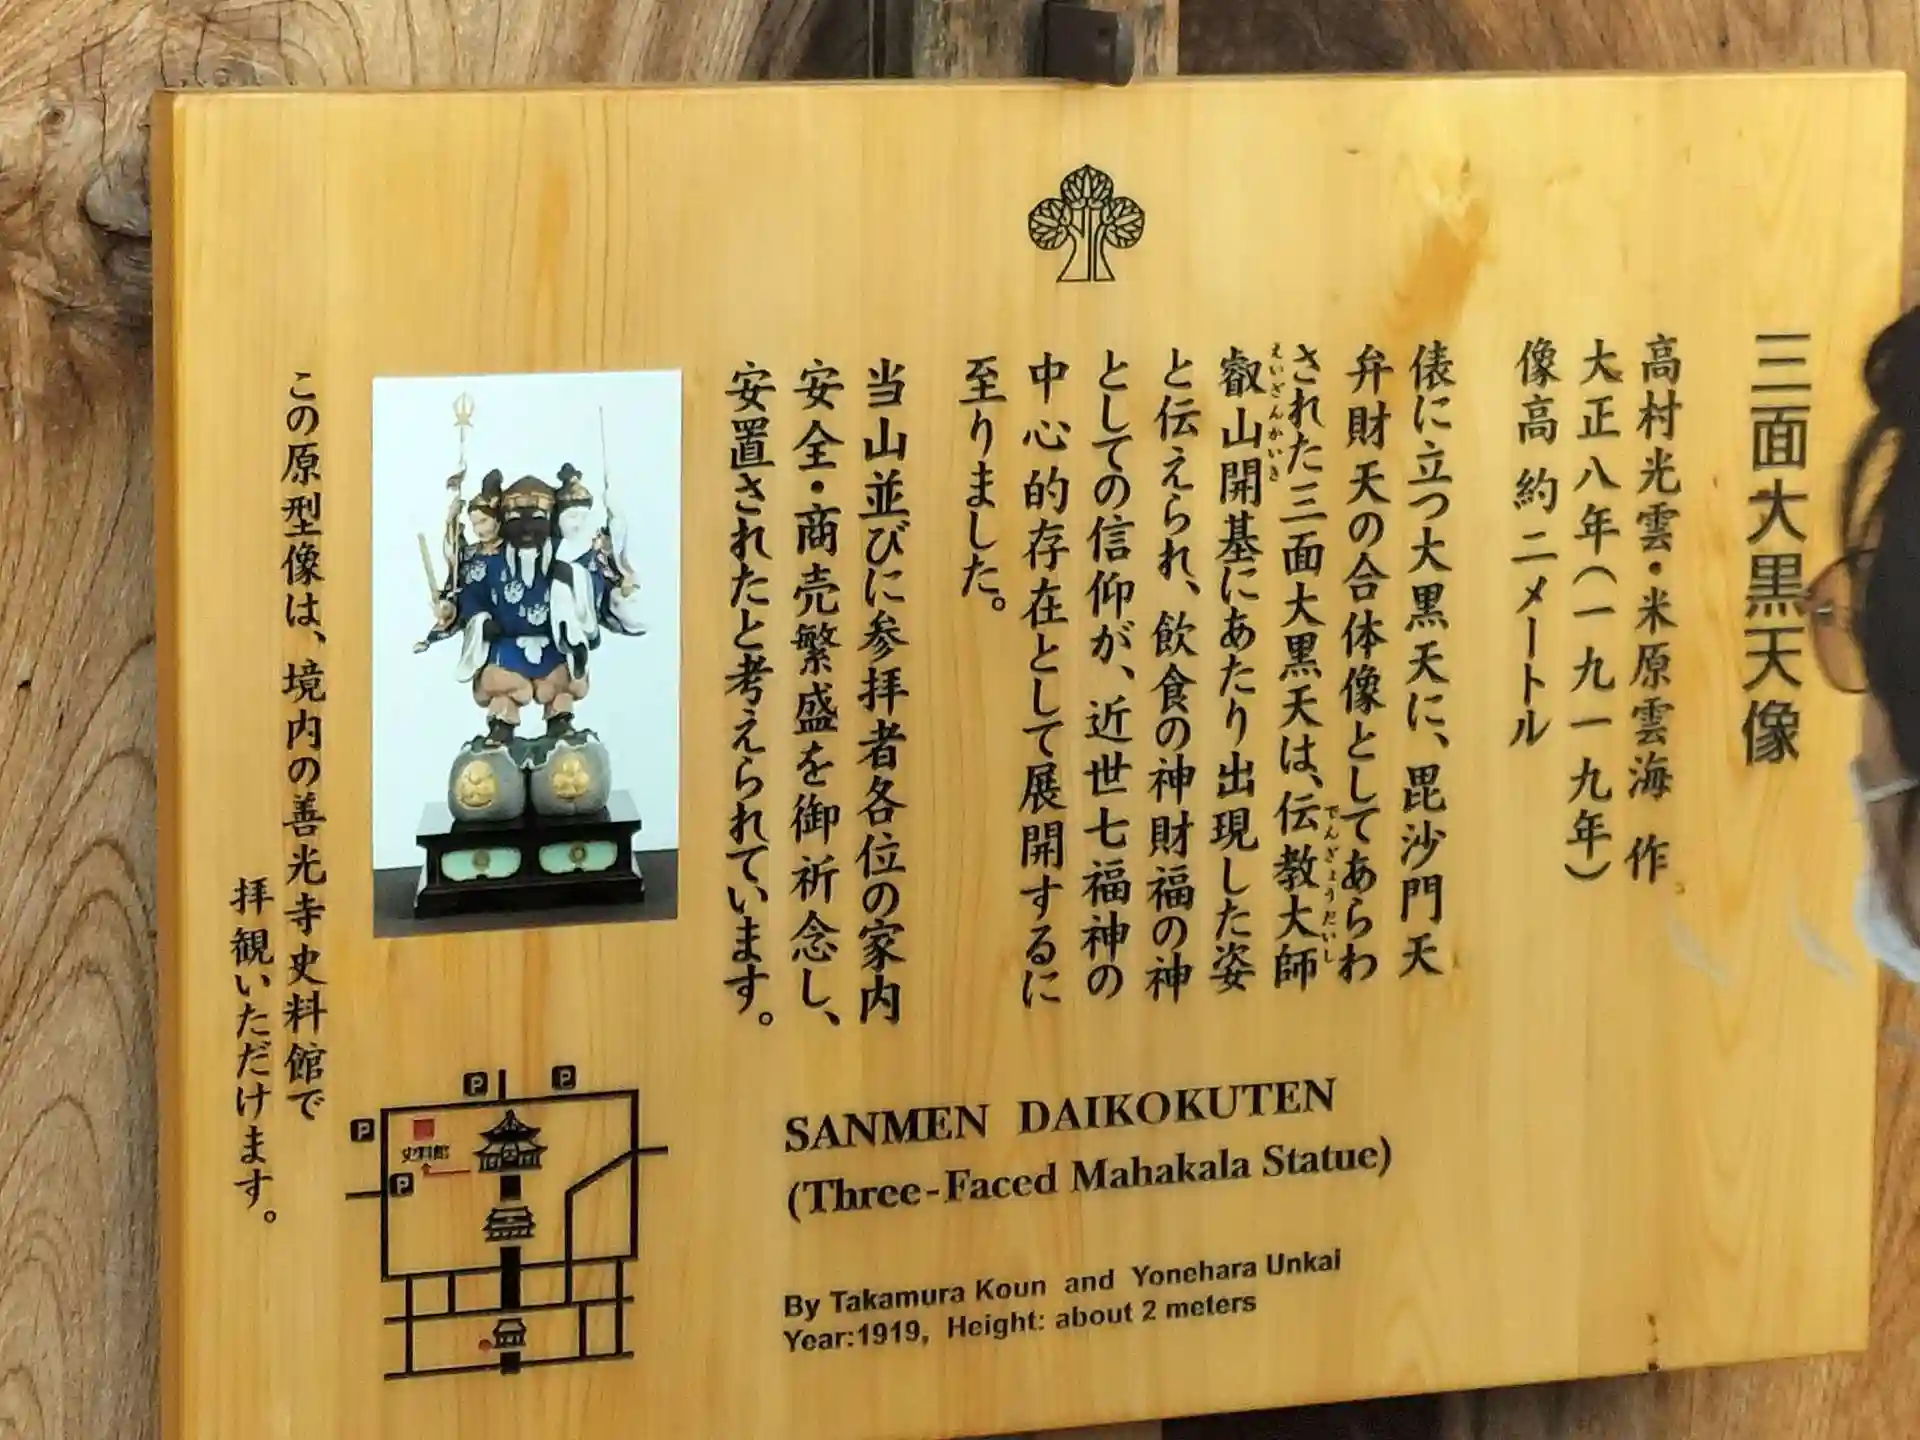 三面大黒天像
高村光雲・米原雲海 作
大正八年(一九一九年)
像高 約 二メートル
俵に立つ大黒天に、毘沙門天
弁財天の合体像としてあらわ
された三面大黒天は、伝教大師
でんぎょうだいし
叡山開基にあたり出現した姿
えいざんかいき
と伝えられ、飲食の神財福の神
としての信仰が、近世七福神の
中心的存在として展開するに
至りました。
当山並びに参拝者各位の家内
安全・商売繁盛を御祈念し、
安置されたと考えられています。
この原型像は、境内の善光寺史料館で
拝観いただけます。
P
P
P
史料館
P
SANMEN DAIKOKUTEN
(Three-Faced Mahakala Statue)
By Takamura Koun and Yonehara Unkai
Year:1919, Height: about 2 meters